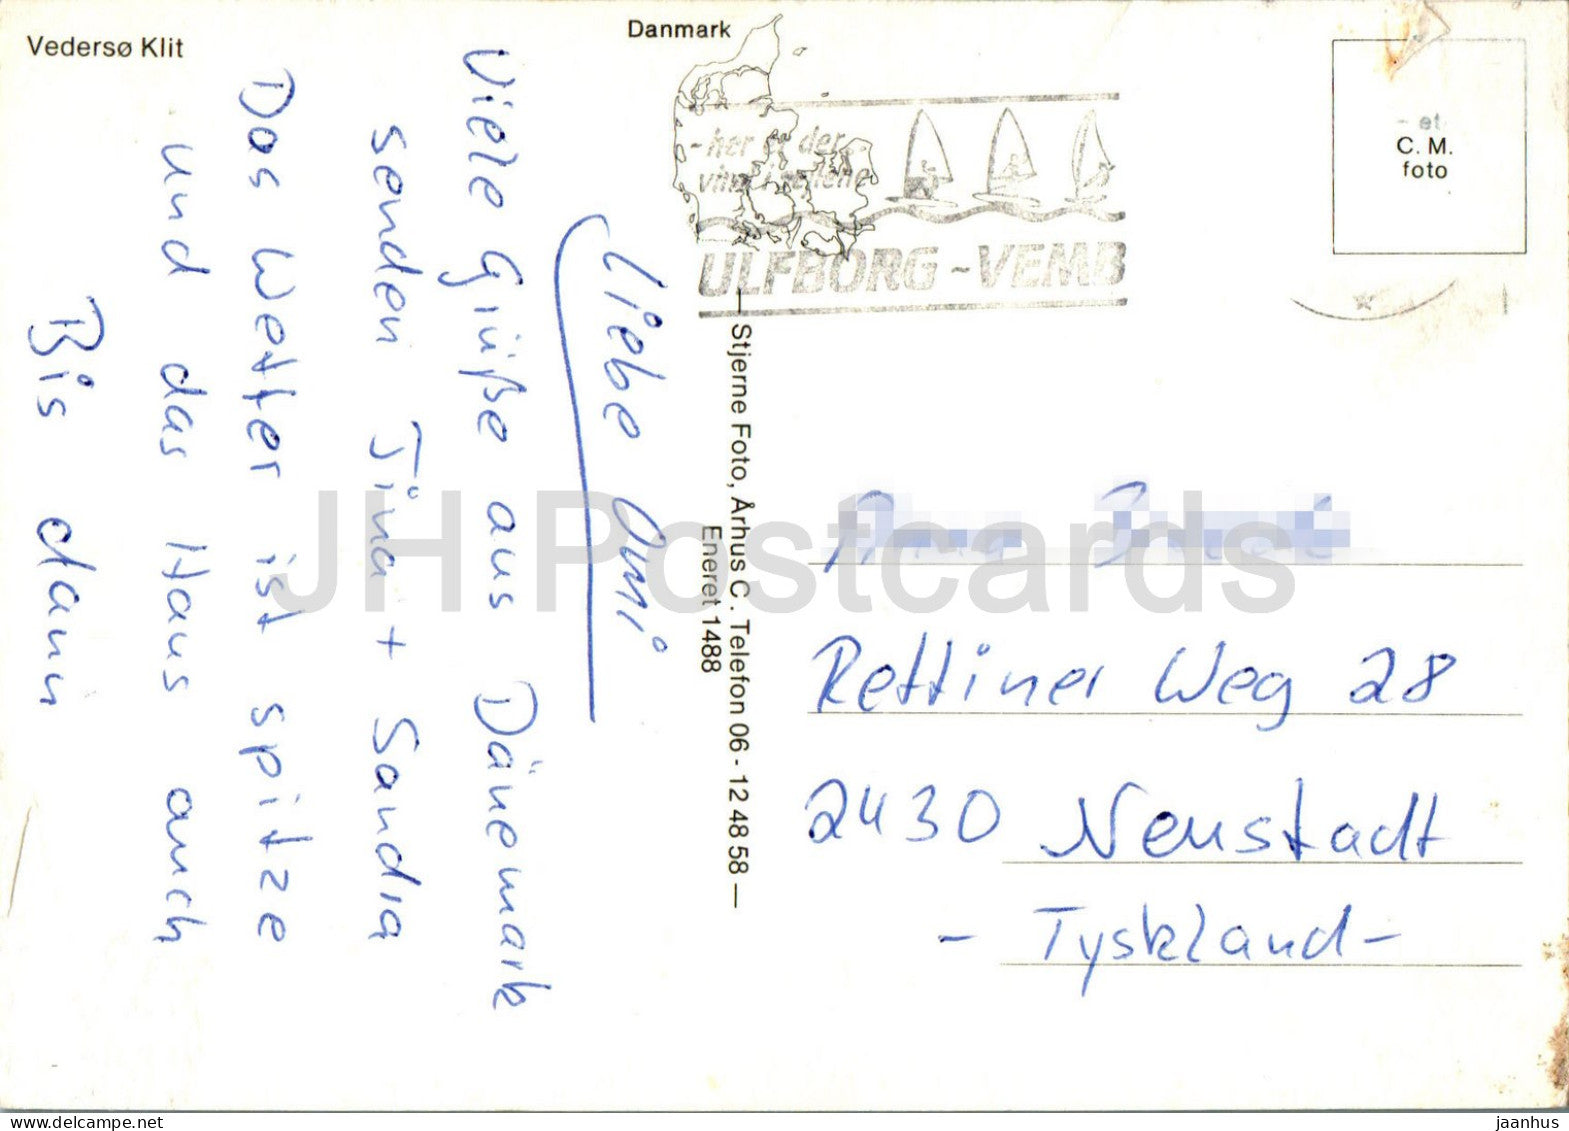 Vedersø Klit
Danmark
- her er der
vind i sejlene
ULFBORG - VEMB
- et
C. M.
foto
Liebe Omi
Viele Grüße aus Dänemark
senden Tina + Sandra
Das Wetter ist spitze
und das Haus auch
Bis dann
— Stjerne Foto, Århus C . Telefon 06 - 12 48 58 —
Eneret 1488
Rettiner Weg 28
2430 Neustadt
- Tyskland -
JH Postcards
delcampe.net
jaanhus